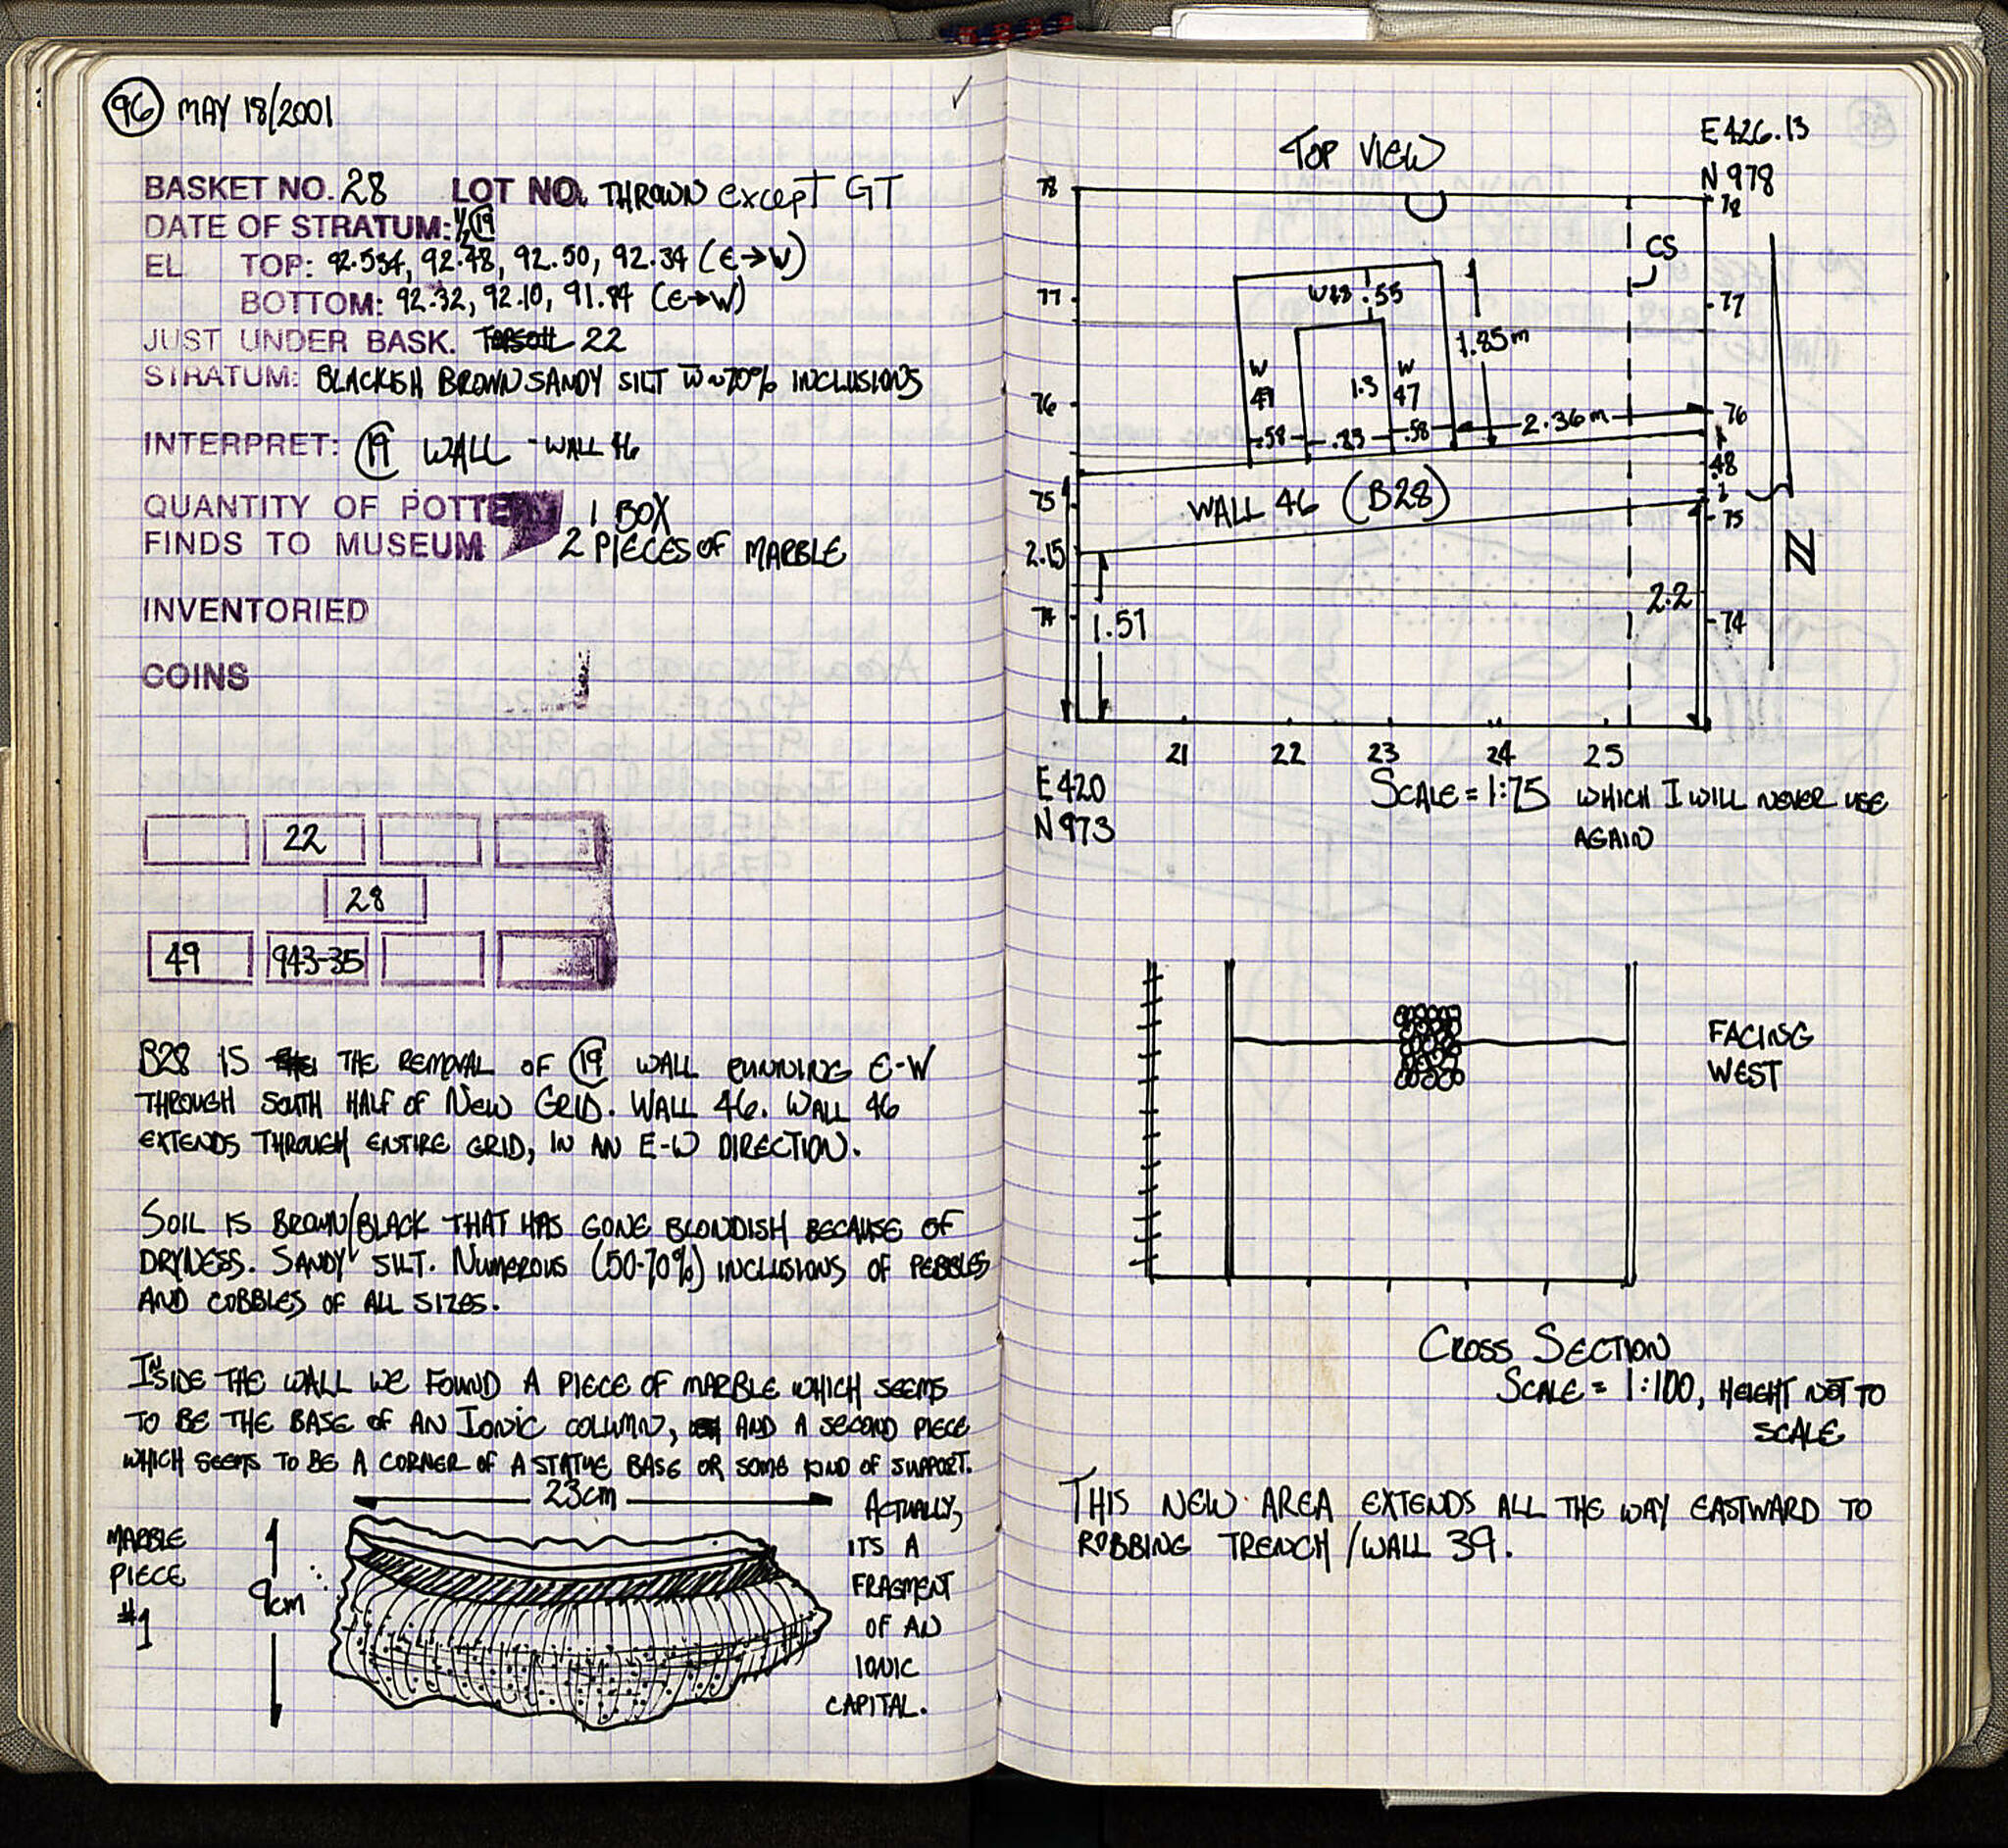 96 MAY 18/2001
BASKET NO. 28 LOT NO. THROWN except GT
DATE OF STRATUM: 19
EL TOP: 92.534, 92.48, 92.50, 92.34 (E→W)
BOTTOM: 92.32, 92.10, 91.94 (E→W)
JUST UNDER BASK. 22
STRATUM: BLACKISH BROWN SANDY SILT W ~70% INCLUSIONS
INTERPRET: 19 WALL - WALL 46
QUANTITY OF POTTE 1 BOX
FINDS TO MUSEUM 2 PIECES OF MARBLE
INVENTORIED
COINS
22
28
49 943-35
B28 IS THE REMOVAL OF 19 WALL RUNNING E-W
THROUGH SOUTH HALF OF NEW GRID. WALL 46. WALL 46
EXTENDS THROUGH ENTIRE GRID, IN AN E-W DIRECTION.
SOIL IS BROWN/BLACK THAT HAS GONE BLONDISH BECAUSE OF
DRYNESS. SANDY SILT. NUMEROUS (50-70%) INCLUSIONS OF PEBBLES
AND COBBLES OF ALL SIZES.
INSIDE THE WALL WE FOUND A PIECE OF MARBLE WHICH SEEMS
TO BE THE BASE OF AN IONIC COLUMN, AND A SECOND PIECE
WHICH SEEMS TO BE A CORNER OF A STATUE BASE OR SOME KIND OF SUPPORT.
23cm
MARBLE
PIECE
#1
9cm
ACTUALLY,
ITS A
FRAGMENT
OF AN
IONIC
CAPITAL.
TOP VIEW
E426.13
N978
78
78
CS
77
W48 .55
77
1.85m
W
49
1.3
W
47
76
76
.58
.83
.58
2.36m
.48
75
WALL 46 (B28)
75
2.15
N
2.2
74
1.51
74
21 22 23 24 25
E420
N973
SCALE = 1:75 WHICH I WILL NEVER USE
AGAIN
FACING
WEST
CROSS SECTION
SCALE = 1:100, HEIGHT NOT TO
SCALE
THIS NEW AREA EXTENDS ALL THE WAY EASTWARD TO
ROBBING TRENCH/WALL 39.